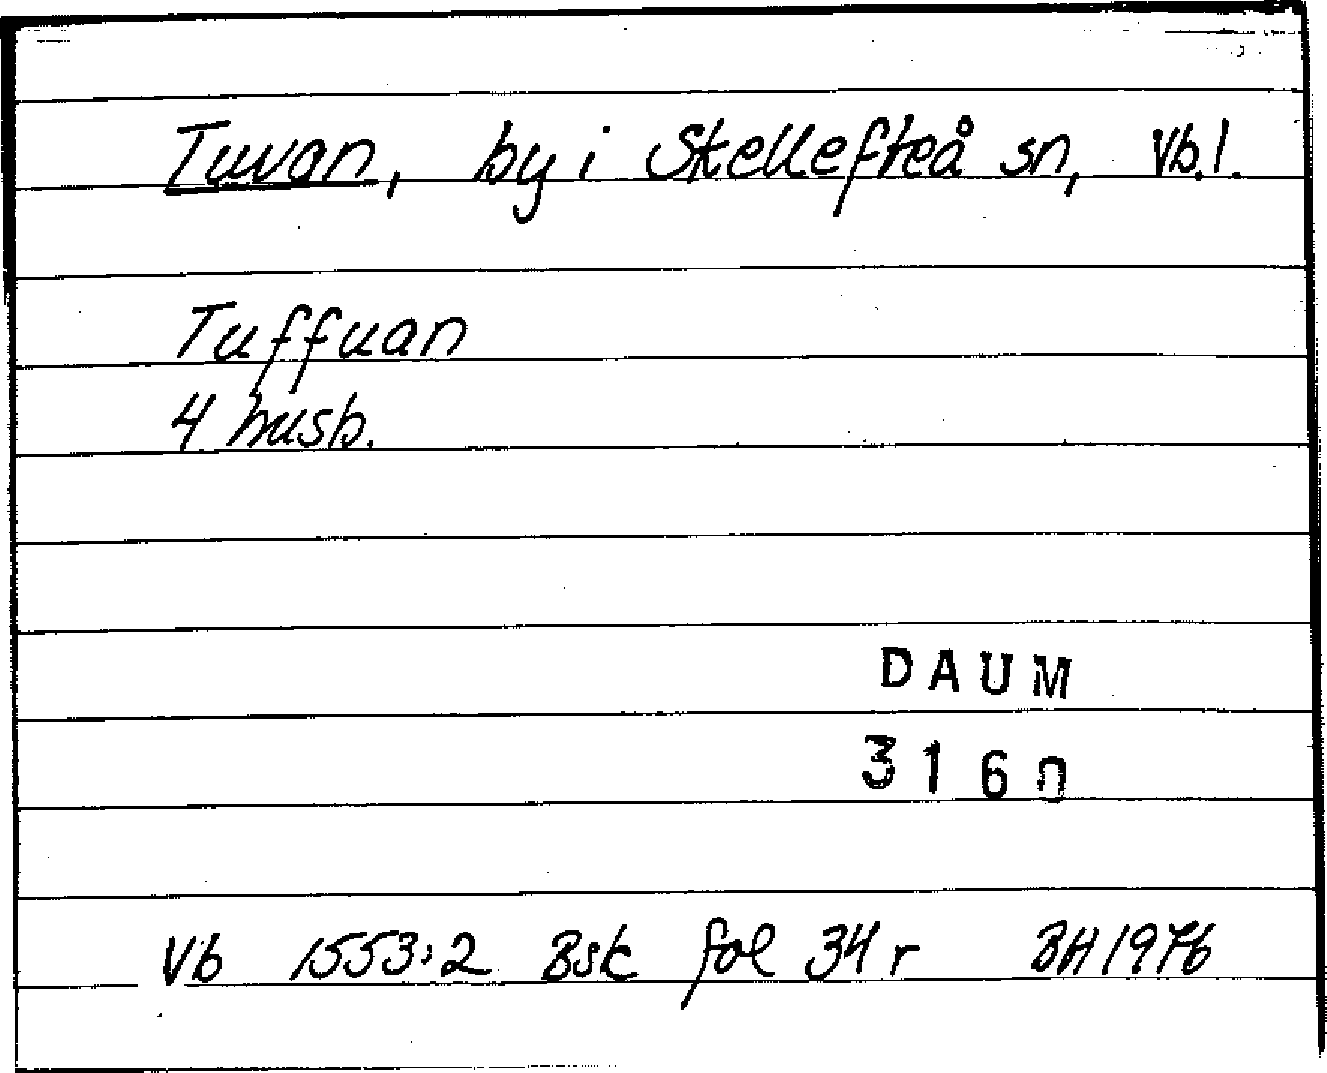 Tuvan, by i Skellefteå sn, Vb.l.
Tuffuan
4 husb.
DAUM
3160
Vb 1553:2 Bsk fol 34 r BH 1976